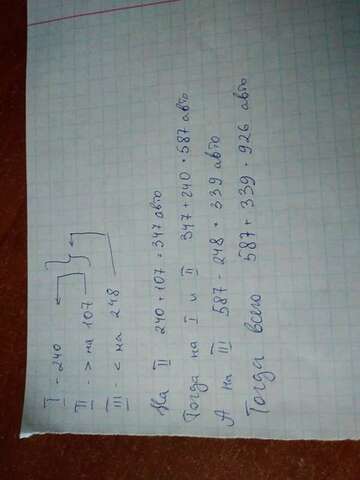 I - 240
II - > на 107
III - < на 248
На II 240 + 107 = 347 авто
Тогда на I и II 347 + 240 = 587 авто
А на III 587 - 248 = 339 авто
Тогда всего 587 + 339 = 926 авто